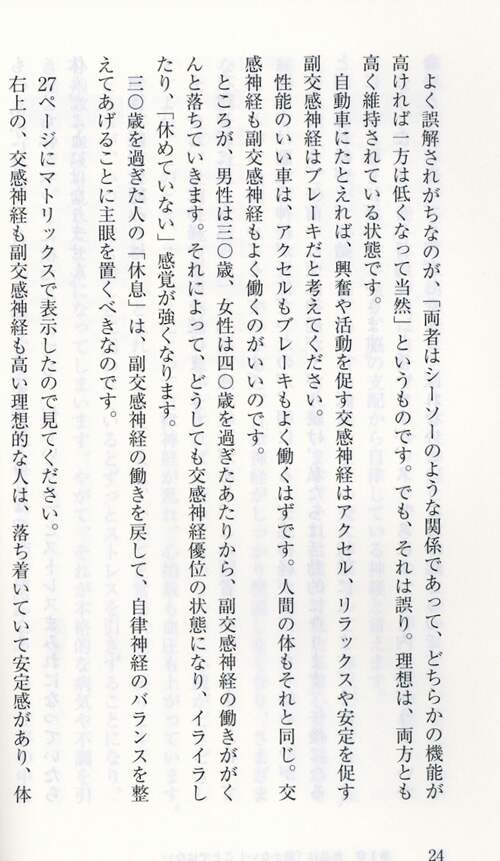 よく誤解されがちなのが、「両者はシーソーのような関係であって、どちらかの機能が
高ければ一方は低くなって当然」というものです。でも、それは誤り。理想は、両方とも
高く維持されている状態です。
自動車にたとえれば、興奮や活動を促す交感神経はアクセル、リラックスや安定を促す
副交感神経はブレーキだと考えてください。
性能のいい車は、アクセルもブレーキもよく働くはずです。人間の体もそれと同じ。交
感神経も副交感神経もよく働くのがいいのです。
ところが、男性は三〇歳、女性は四〇歳を過ぎたあたりから、副交感神経の働きががく
んと落ちていきます。それによって、どうしても交感神経優位の状態になり、イライラし
たり、「休めていない」感覚が強くなります。
三〇歳を過ぎた人の「休息」は、副交感神経の働きを戻して、自律神経のバランスを整
えてあげることに主眼を置くべきなのです。
27ページにマトリックスで表示したので見てください。
右上の、交感神経も副交感神経も高い理想的な人は、落ち着いていて安定感があり、体
24